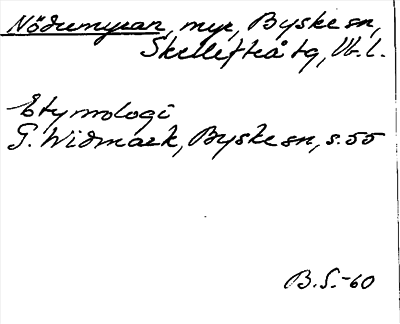 Nödumyran, myr, Byske sn,
Skellefteå tg, Vb. l.
Etymologi
G. Widmark, Byske sn, s. 55
B. S. -60